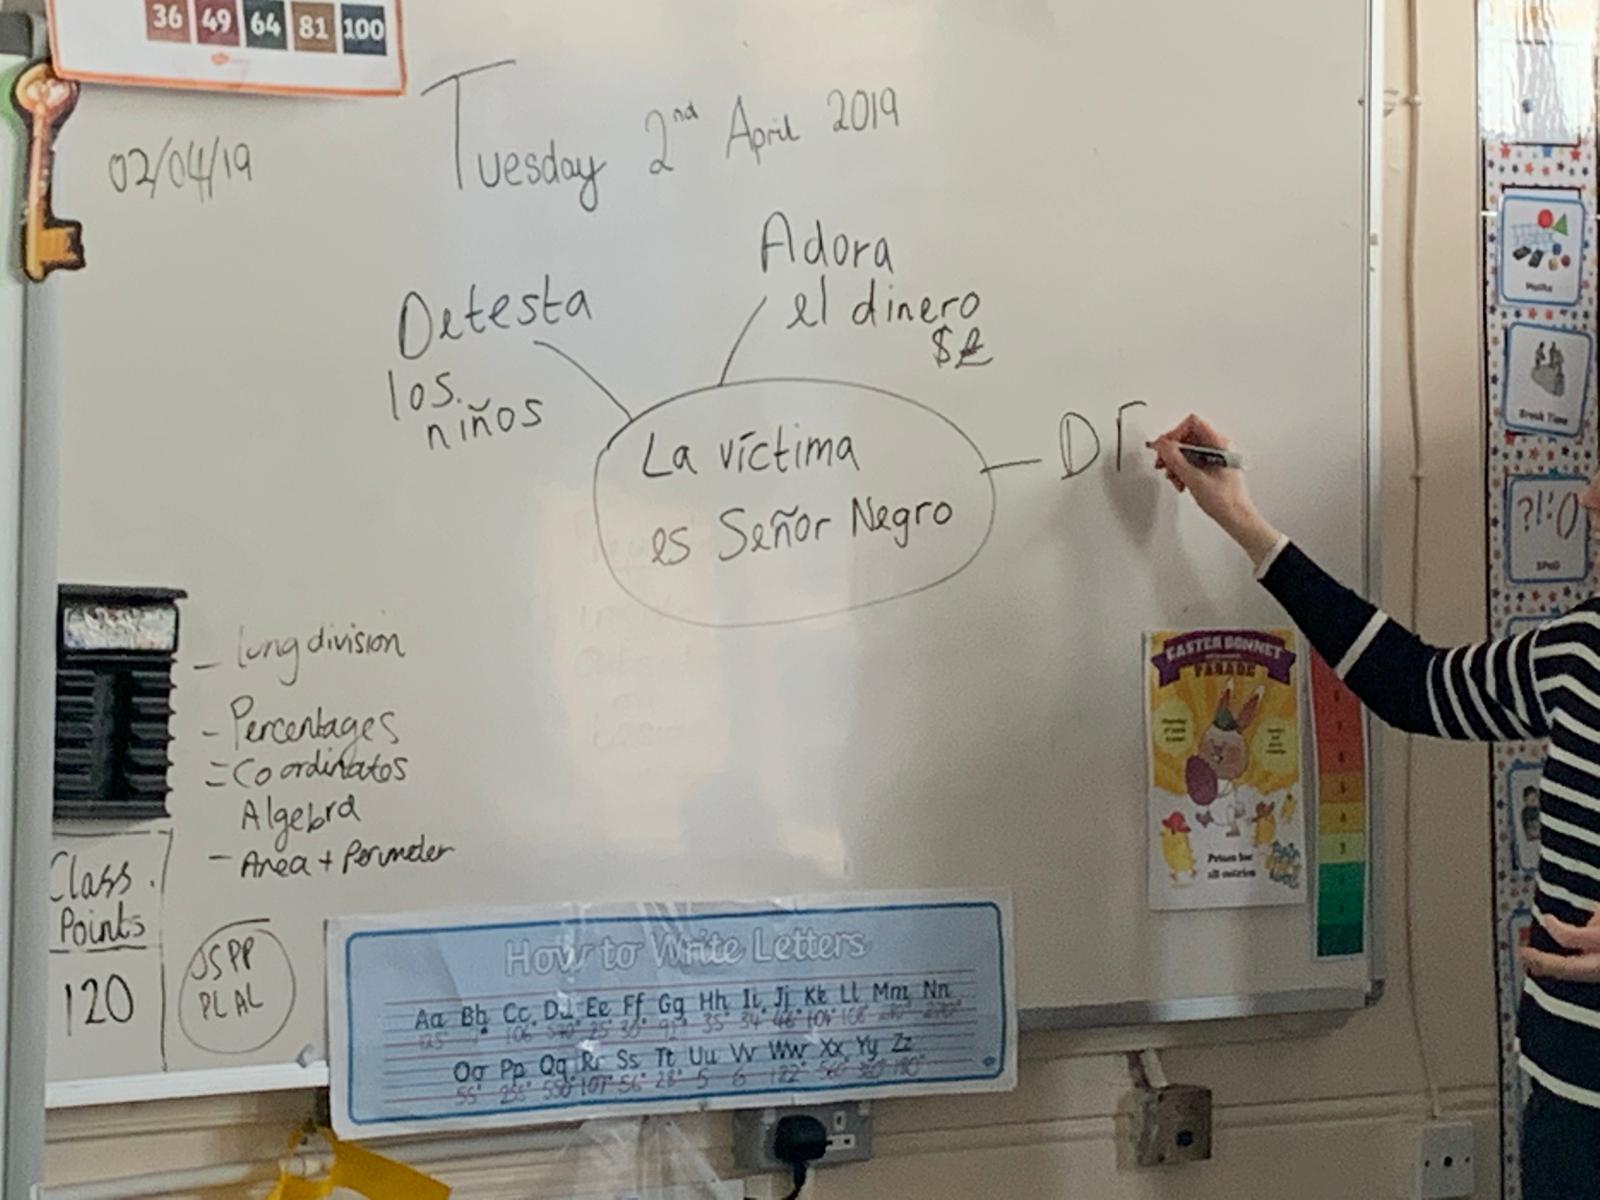 36 49 64 81 100
02/04/19
Tuesday 2nd April 2019
Adora
el dinero
$£
Detesta
los
niños
La víctima
es Señor Negro
D
- long division
- Percentages
= Coordinates
Algebra
- Area + Perimeter
Class
Points
120
JSPP
PLAL
How to Write Letters
Aa Bb Cc Dd Ee Ff Gg Hh Ii Jj Kk Ll Mm Nn
Oo Pp Qq Rr Ss Tt Uu Vv Ww Xx Yy Zz
EASTER BONNET
PARADE
Prizes for
all entries
Maths
Break Time
?!:()
SPaG